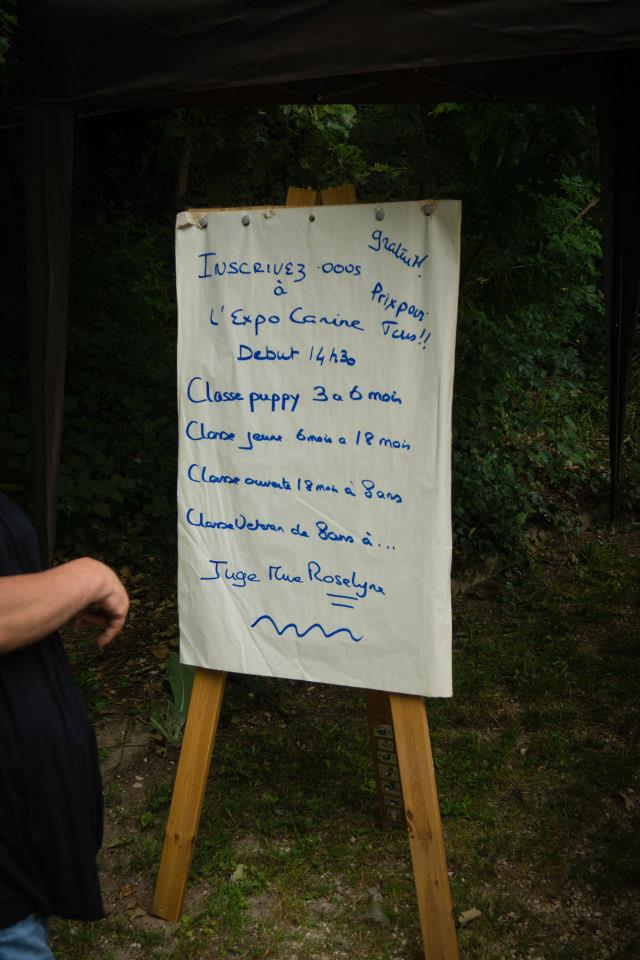 INSCRIVEZ-VOUS
à
L'Expo Canine
gratuit!
Prix pour
Tous!!
Debut 14h30
Classe puppy 3 a 6 mois
Classe jeune 6 mois a 18 mois
Classe ouverte 18 mois à 8 ans
Classe Veteran de 8 ans à...
Juge Mme Roselyne